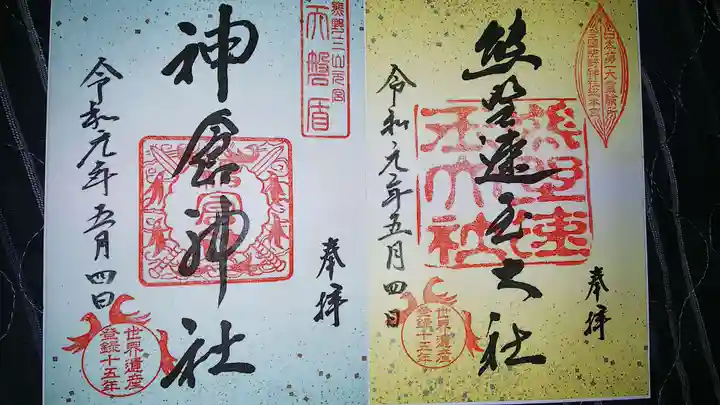 奉拝
熊野三山元宮
天磐盾
神倉神社
令和元年五月四日
世界遺産
登録十五年
奉拝
日本第一大霊験所
熊野速玉大社
令和元年五月四日
世界遺産
登録十五年